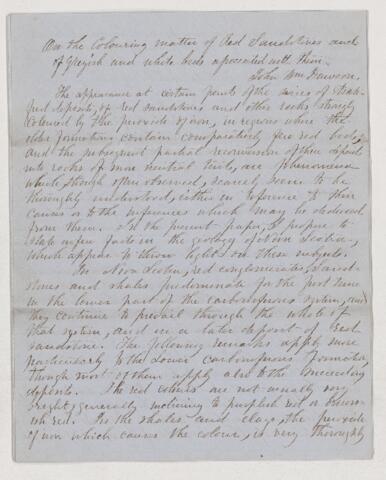 On the Colouring matter of Red Sandstones and
of Greyish and white beds associated with them.
John Wm Dawson.
The appearance at certain points of the series of strati-
fied deposits, of red sandstones and other rocks strongly
coloured by the peroxide of iron, in regions where the
older formations contain comparatively few red beds,
and the subsequent partial recurrence of these deposits
into rocks of more neutral tints, are phenomena
which, though often observed, scarcely seem to be
thoroughly understood, either in reference to their
causes or to the inferences which may be deduced
from them. In the present paper, I propose to
state a few facts in the geology of Nova Scotia,
which appear to throw light on these subjects.
In Nova Scotia, red conglomerates, sand-
stones and shales predominate for the first time
in the lower part of the carboniferous system, and
they continue to prevail through the whole of
that system, and in a later deposit of Red
sandstone. The following remarks apply more
particularly to the Lower carboniferous formation,
though most of them apply also to the succeeding
deposits. The red colours are not usually very
bright, generally inclining to purplish red or brown-
ish red. In the shales and clays, the peroxide
of iron which causes the colour, is very thoroughly